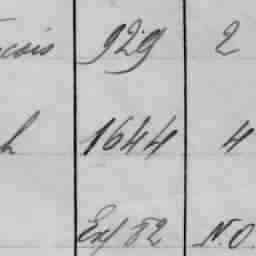 çois 929 2
h 1644 4
Exf 82 N.O.